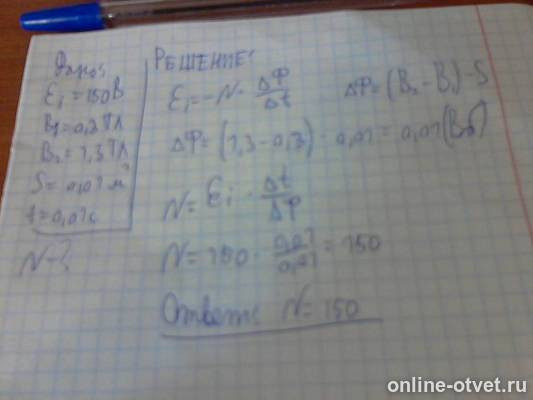 Дано:
Ei = 150В
B1 = 0,3Тл
B2 = 1,3Тл
S = 0,01 м²
t = 0,01с
N-?
РЕШЕНИЕ:
Ei = -N · ΔФ/Δt ΔФ = (B2 - B1) · S
ΔФ = (1,3 - 0,3) · 0,01 = 0,01 (Вб)
N = Ei · Δt/ΔФ
N = 150 · 0,01/0,01 = 150
Ответ: N = 150
online-otvet.ru